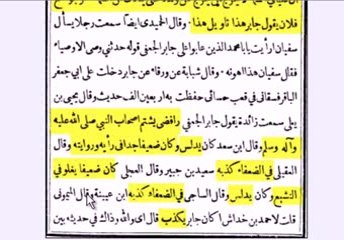 فلان يقول جابر هذا تأويل هذا . وقال الحميدي ايضا سمعت رجلا يسأل
سفيان ارأيت يا ابا محمد الذين عابوا على جابر الجعفي قوله حدثني وصي الاوصياء
فقال سفيان هذا اهونه . وقال شبابة عن ورقاء عن جابر دخلت على ابي جعفر
الباقر فسقاني في قعب حسائي حفظت به اربعين الف حديث وقال يحيى بن
يعلى سمعت زائدة يقول جابر الجعفي رافضي يشتم اصحاب النبي صلى الله عليه
وآله وسلم وقال ابن سعد كان يدلس وكان ضعيفا جدا في رأيه وروايته وقال
العقيلي في الضعفاء كذبه سعيد بن جبير وقال العجلي كان ضعيفا يغلو في
التشيع وكان يدلس وقال الساجي في الضعفاء كذبه ابن عيينة وقال الميموني
قلت لاحمد بن خداش اكان جابر يكذب قال اي والله وذاك في حديثه بين